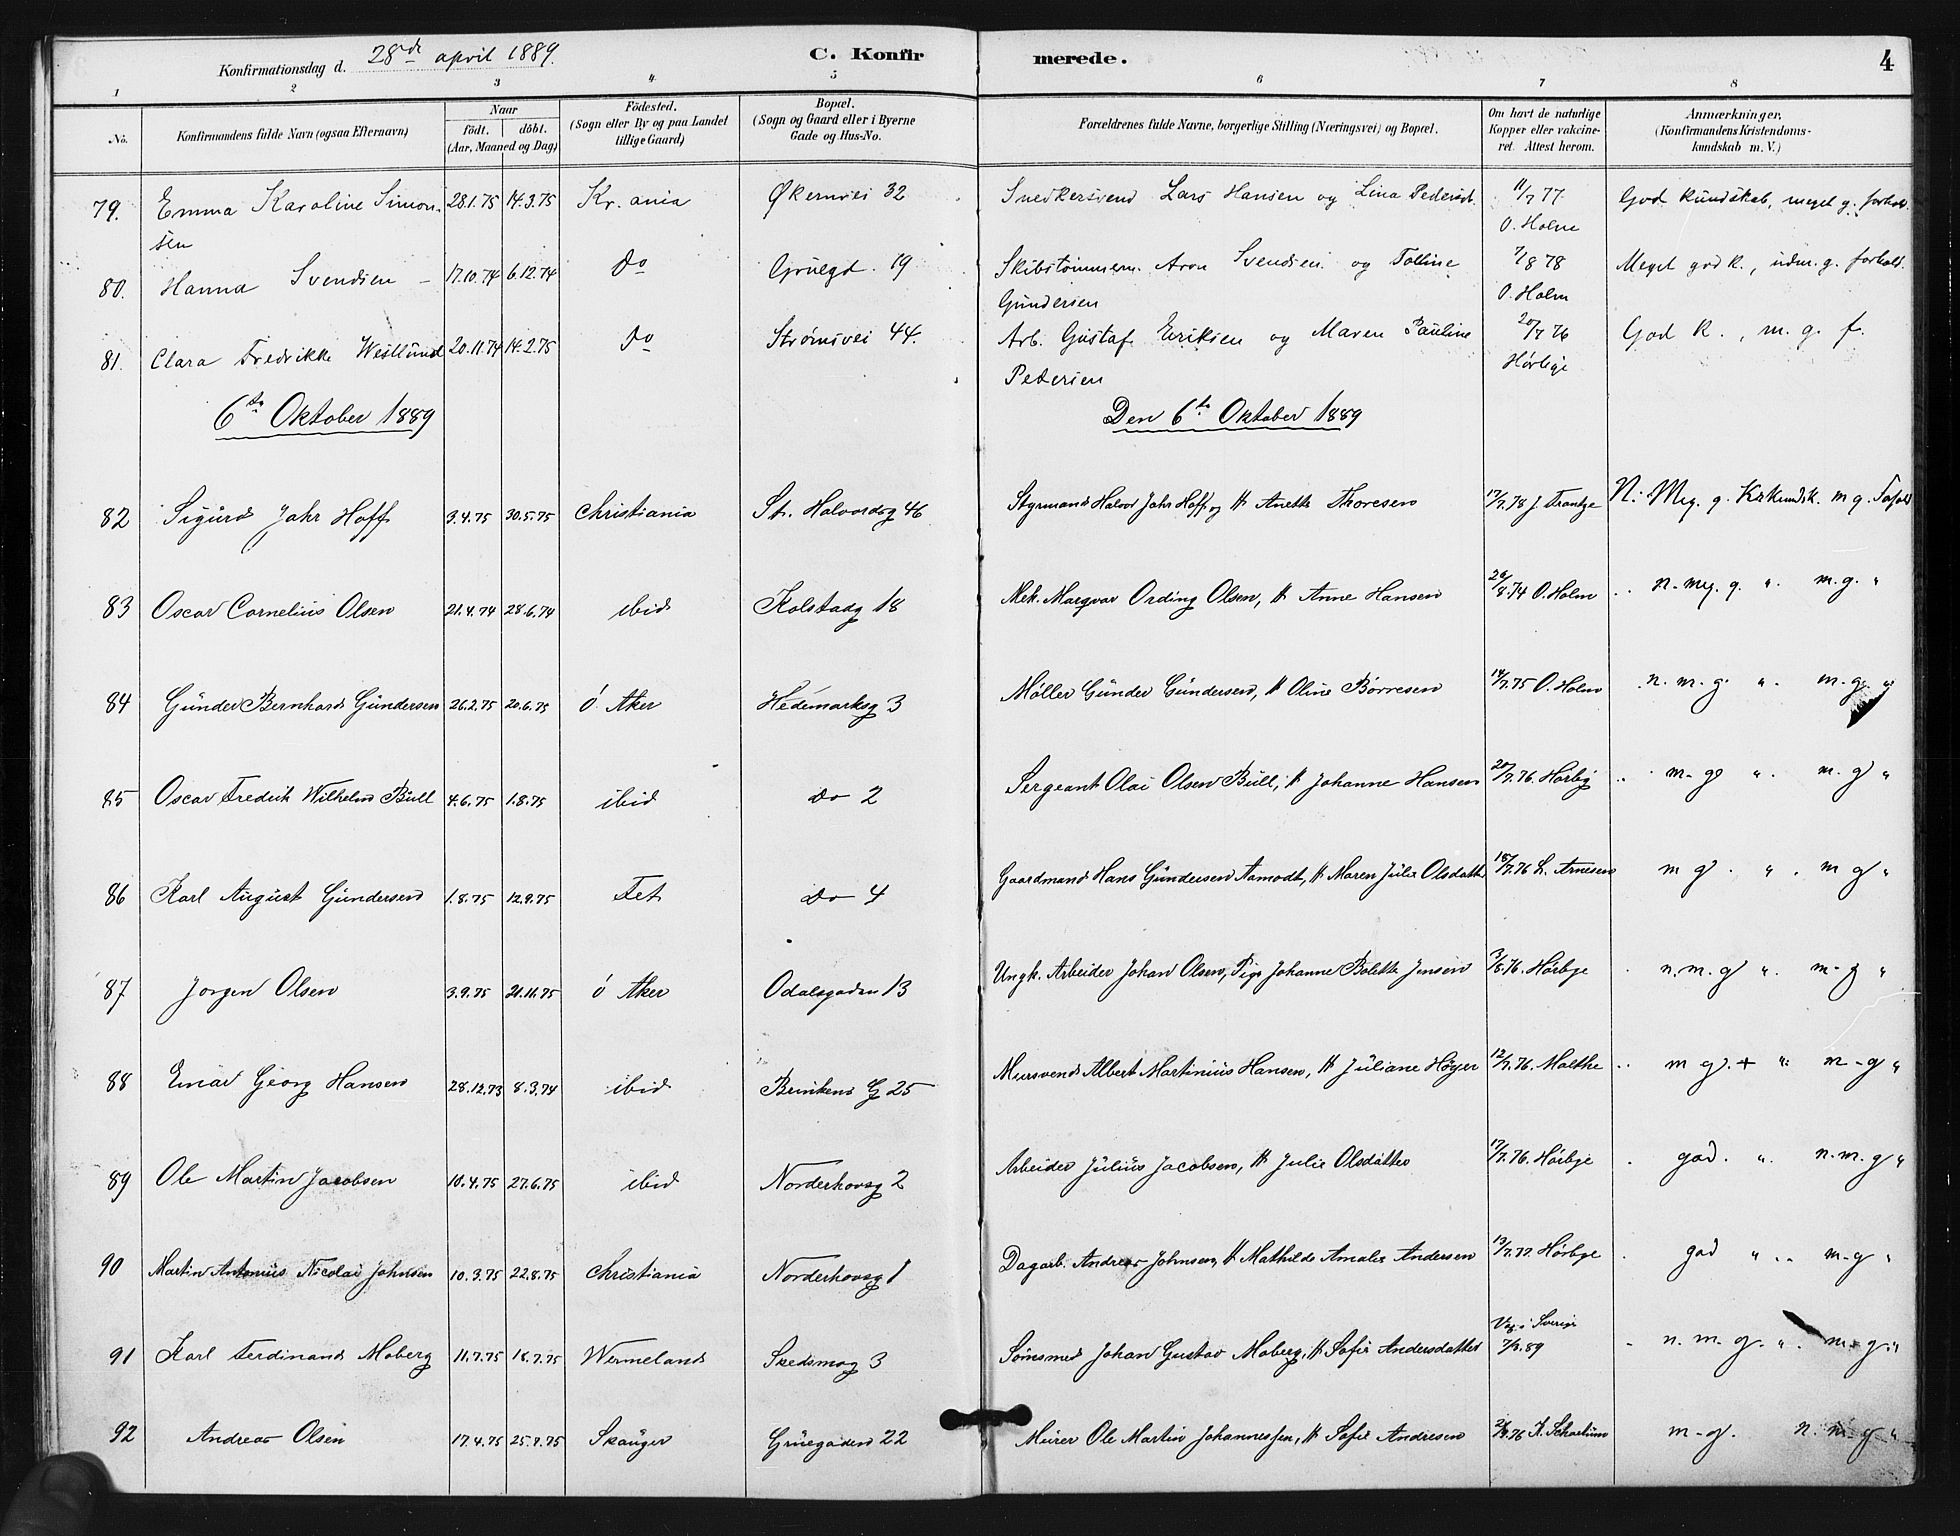 Konfirmationsdag d. 28de april 1889. C. Konfirmerede. 4
1 2 3 4 5 6 7 8
No. Konfirmandens fulde Navn (ogsaa Efternavn) Naar födt. döbt. (Aar, Maaned og Dag) Födested. (Sogn eller By og paa Landet tillige Gaard) Bopæl. (Sogn og Gaard eller i Byerne Gade og Hus-No. Forældrenes fulde Navne, borgerlige Stilling (Næringsvei) og Bopæl. Om havt de naturlige Kopper eller vakcineret. Attest herom. Anmærkninger. (Konfirmandens Kristendomskundskab m. V.)
79. Emma Karoline Simonsen 28.1.75 14.3.75 Kr.ania Økernvei 32 Snedkersvend Lars Hansen og Lina Pedersdt. 11/7 77. O. Holm God kundskab, meget g. forhold.
80. Hanna Svendsen 17.10.74 6.12.74 do Gruegd. 19 Skibstømmerm. Aron Svendsen og Tolline Gundersen 7/8 78 O. Holm Meget god k., udm. g. forhold.
81. Clara Fredrikke Westlund 20.11.74 14.2.75 do Strømsvei 44. Arb. Gustaf Eriksen og Maren Pauline Pedersen 20/7 76 Hørbye God k., m. g. f.
6te Oktober 1889 Den 6te Oktober 1889
82 Sigurd Jahr Hoff 3.4.75 30.5.75 Christiania St. Halvordsg 46 Styrmand Halvor Jahr Hoff og H. Anette Thoresen 17/7.78 J. Frantze N: Meg. g. Krkundsk. m g. Forhold
83 Oscar Cornelius Olsen 21.4.74 28.6.74 ibid Kolstadg 18 Mek. Margvar Ording Olsen, H Anne Hansen 26/8.74 O. Holm .. n. meg. g. " m. g. "
84 Gunder Bernhard Gundersen 26.2.75 20.6.75 Ø. Aker Hedemarksg 3 Møller Gunder Gundersen, H Oline Børresen 14/7.75 O. Holm n. m. g. " m. g. "
85 Oscar Fredrik Wilhelm Bull 4.6.75 1.8.75 ibid do 2 Sergeant Olai Olsen Bull, H Johanne Hansen 20/7.76. Hørbye .. m-g " m. g "
86 Karl August Gundersen 1.8.75 12.9.75 Fet do 4 Gaardmand Hans Gundersen Aamodt, H Maren Julie Olsdatter 18/7.76 L. Arnesen m g. " m g "
87 Jørgen Olsen 3.9.75 21.11.75 Ø Aker Odalsgaden 13 Ungk. Arbeider Johan Olsen, Pige Johanne Bolette Jensen 3/8.76. Hørbye . n. m. g " m-g "
88 Einar Georg Hansen 28.12.73 8.3.74 ibid Brinkens G 25 Mursvend Albert Martinius Hansen, H Juliane Høyer 12/7.76. Malthe .. m g. + " m-g "
89 Ole Martin Jacobsen 10.4.75 27.6.75 ibid Norderhovsg 2 Arbeider Julius Jacobsen, H Julie Olsdatter 17/7.76. Hørbye . god. " n. m. g "
90 Martin Antonius Nicolai Johnsen 10.3.75 22.8.75 Christiania Norderhovsg 1 Dagarb. Andreas Johnsen, H Mathilde Amalie Andersen 13/7.77. Hørbye . god " .. m-g "
91 Karl Ferdinand Moberg 11.7.75 18.7.75 Wermeland Skedsmog 3 Sømsmed Johan Gustav Moberg, H Sofie Andersdatter Vac. i Sverige 7/9.89 - n. m. g. " m-g. "
92 Andreas Olsen 17.4.75 25.7.75 Skauger Gruegaden 22 Murer Ole Martin Johannessen, H Sofie Andresen 2/9.76 K. Schaelum m-g. n. m-g "